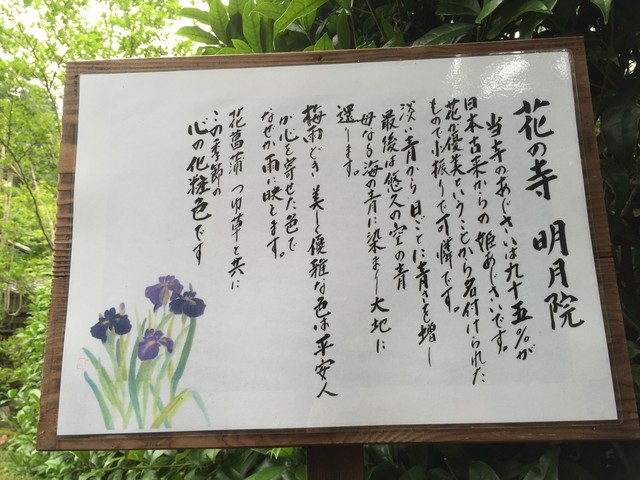 花の寺 明月院
当寺のあじさいは九十五％が
日本古来からの姫あじさいです。
花が優美ということから名付けられた
もので小振りで可憐です。
淡い青から日ごとに青さを増し
最後は悠久の空の青
母なる海の青に染まし大地に
還ります。
梅雨どき 美しく優雅な色は平安人
が心を寄せた色で
なぜか雨に映えます。
花菖蒲 つゆ草と共に
この季節の
心の化粧色です